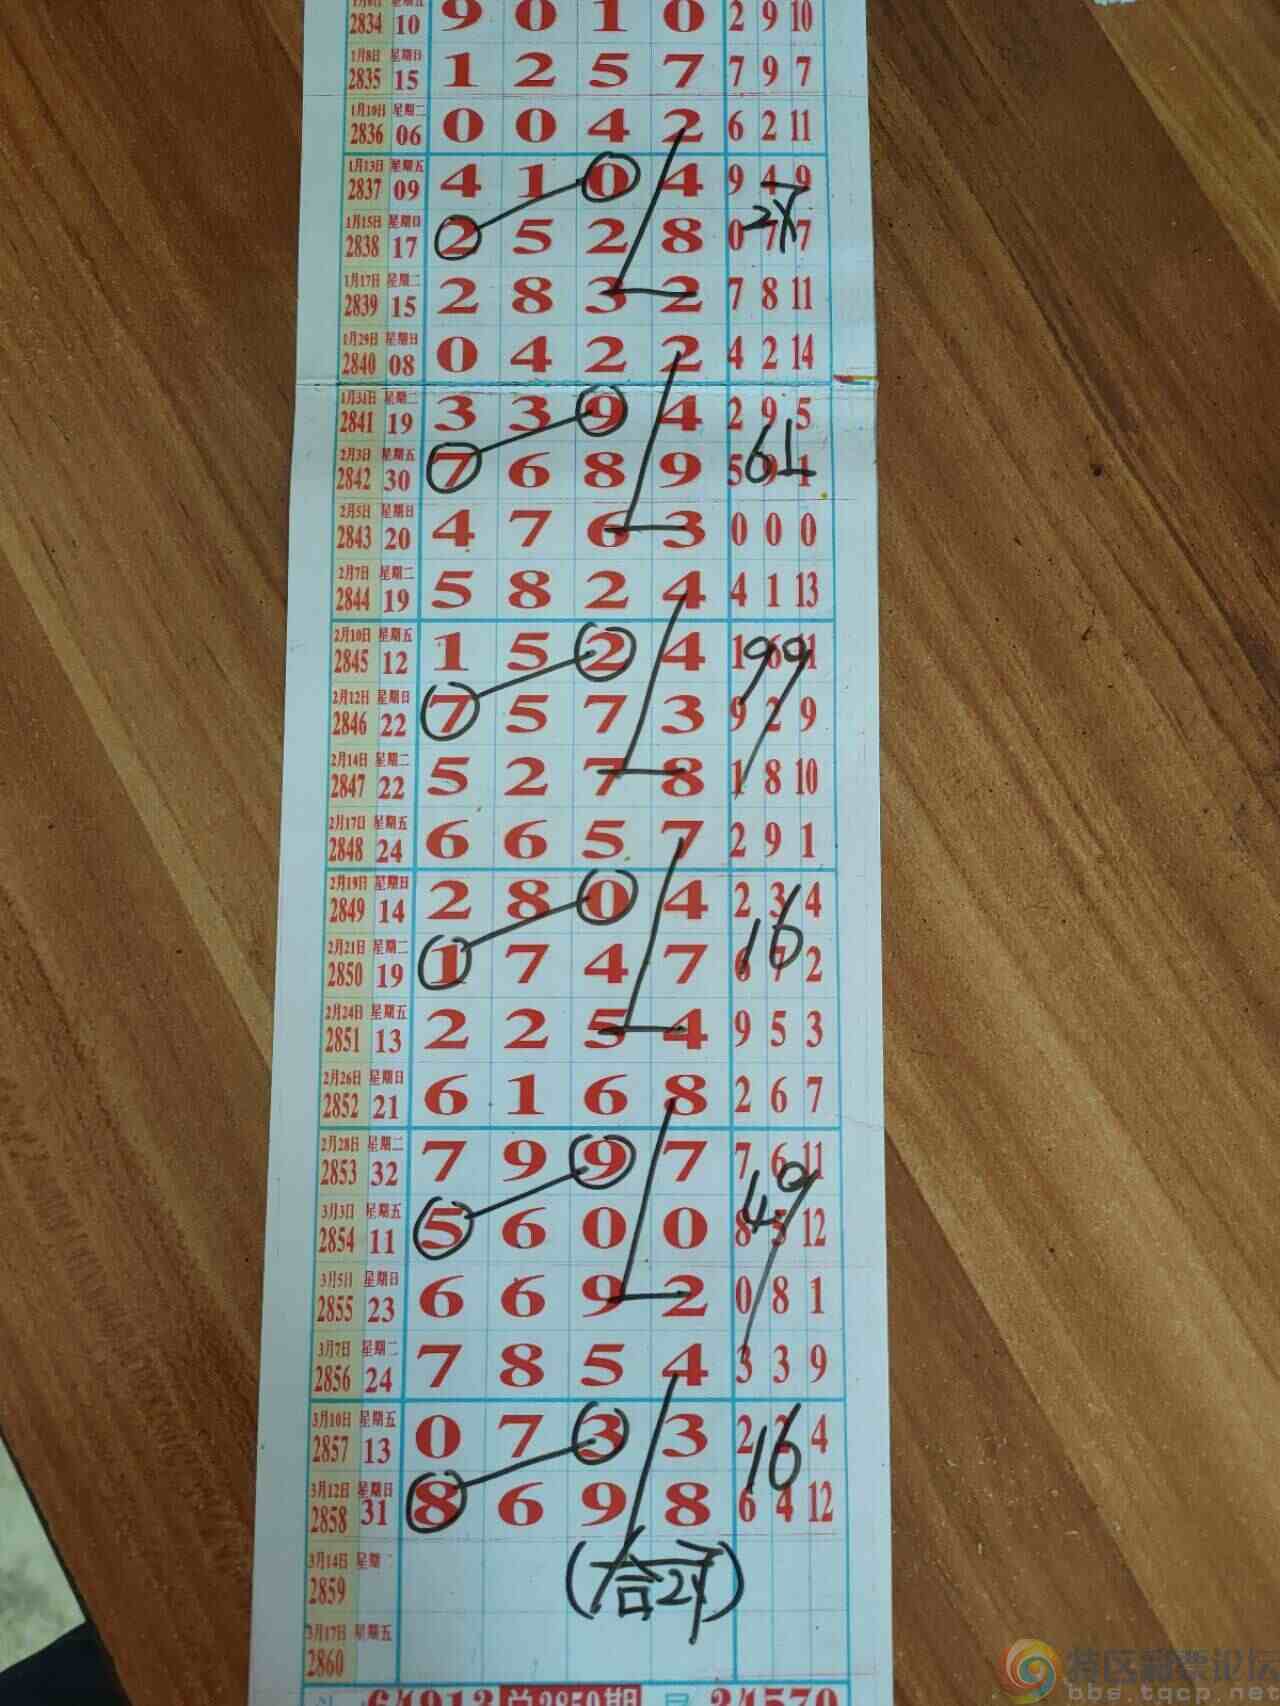 2834 10 9 0 1 0 2 9 10
1月8日 星期日 2835 15 1 2 5 7 7 9 7
1月10日 星期二 2836 06 0 0 4 2 6 2 11
1月13日 星期五 2837 09 4 1 0 4 9 4 9
1月15日 星期日 2838 17 2 5 2 8 0 7 7
1月17日 星期二 2839 15 2 8 3 2 7 8 11
1月29日 星期日 2840 08 0 4 2 2 4 2 14
1月31日 星期二 2841 19 3 3 9 4 2 9 5
61
2月3日 星期五 2842 30 7 6 8 9 5 9 1
2月5日 星期日 2843 20 4 7 6 3 0 0 0
2月7日 星期二 2844 19 5 8 2 4 4 1 13
2月10日 星期五 2845 12 1 5 2 4 1 6 11
99
2月12日 星期日 2846 22 7 5 7 3 9 2 9
2月14日 星期二 2847 22 5 2 7 8 1 8 10
2月17日 星期五 2848 24 6 6 5 7 2 9 1
2月19日 星期日 2849 14 2 8 0 4 2 3 4
16
2月21日 星期二 2850 19 1 7 4 7 6 7 2
2月24日 星期五 2851 13 2 2 5 4 9 5 3
2月26日 星期日 2852 21 6 1 6 8 2 6 7
2月28日 星期二 2853 32 7 9 9 7 7 6 11
49
3月3日 星期五 2854 11 5 6 0 0 8 5 12
3月5日 星期日 2855 23 6 6 9 2 0 8 1
3月7日 星期二 2856 24 7 8 5 4 3 3 9
3月10日 星期五 2857 13 0 7 3 3 2 2 4
16
3月12日 星期日 2858 31 8 6 9 8 6 4 12
3月14日 星期二 2859
(合27)
3月17日 星期五 2860
总2850期
特区彩票论坛
bbs.tqcp.net